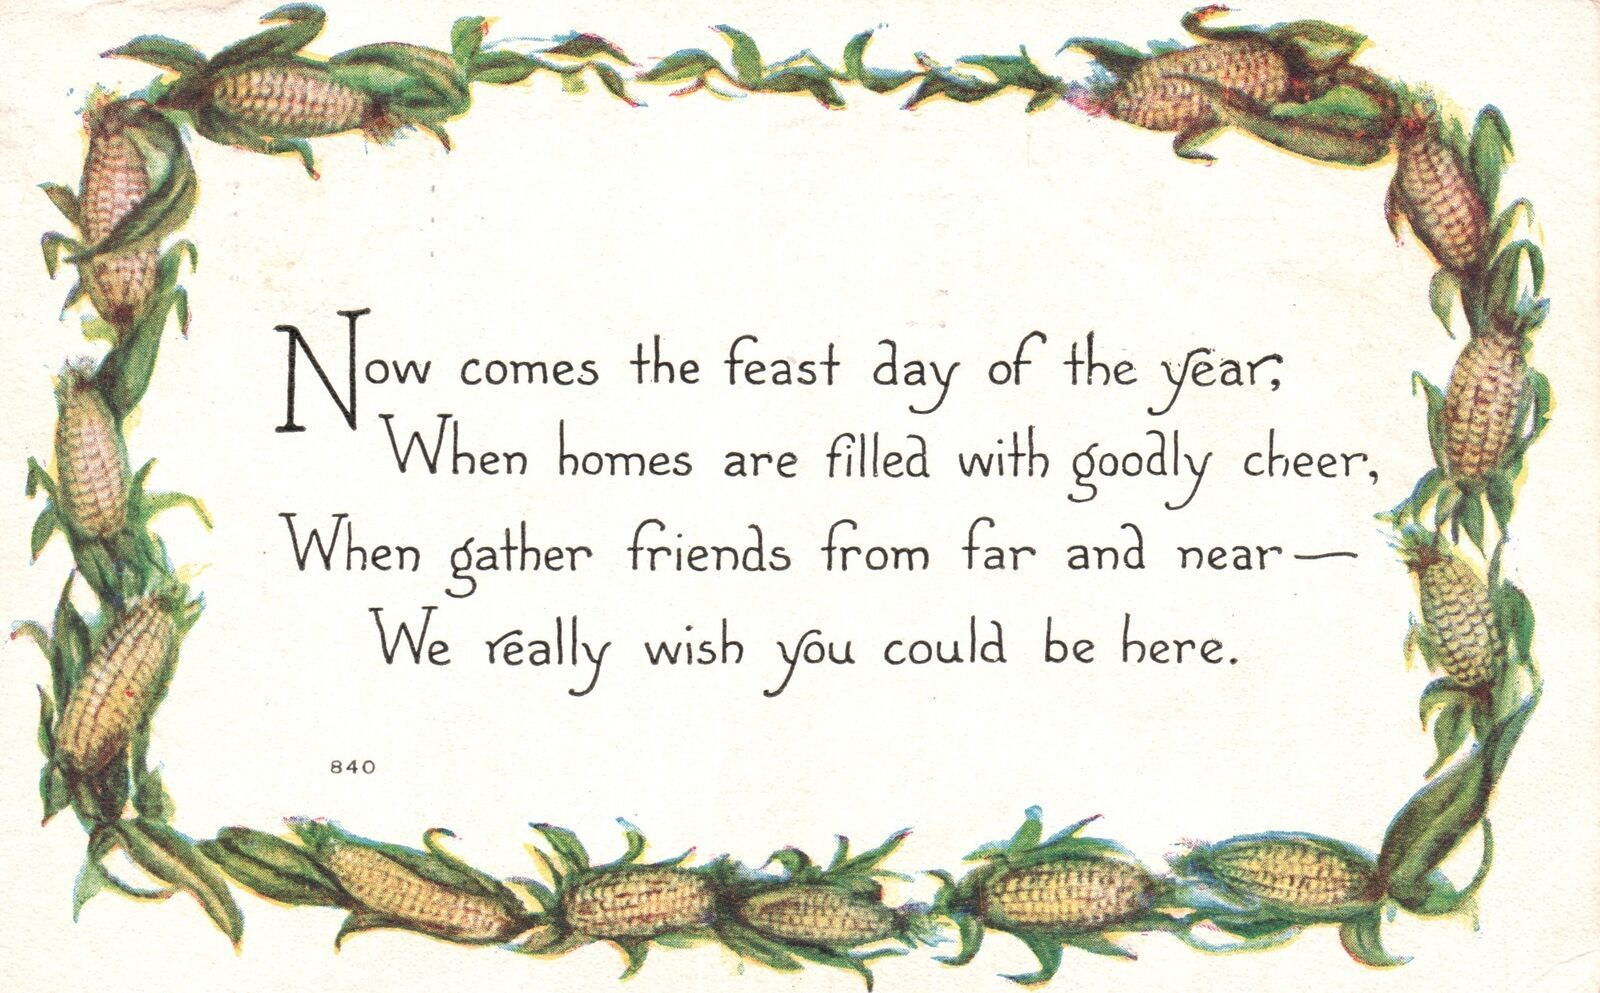 Now comes the feast day of the year,
When homes are filled with goodly cheer,
When gather friends from far and near —
We really wish you could be here.
840